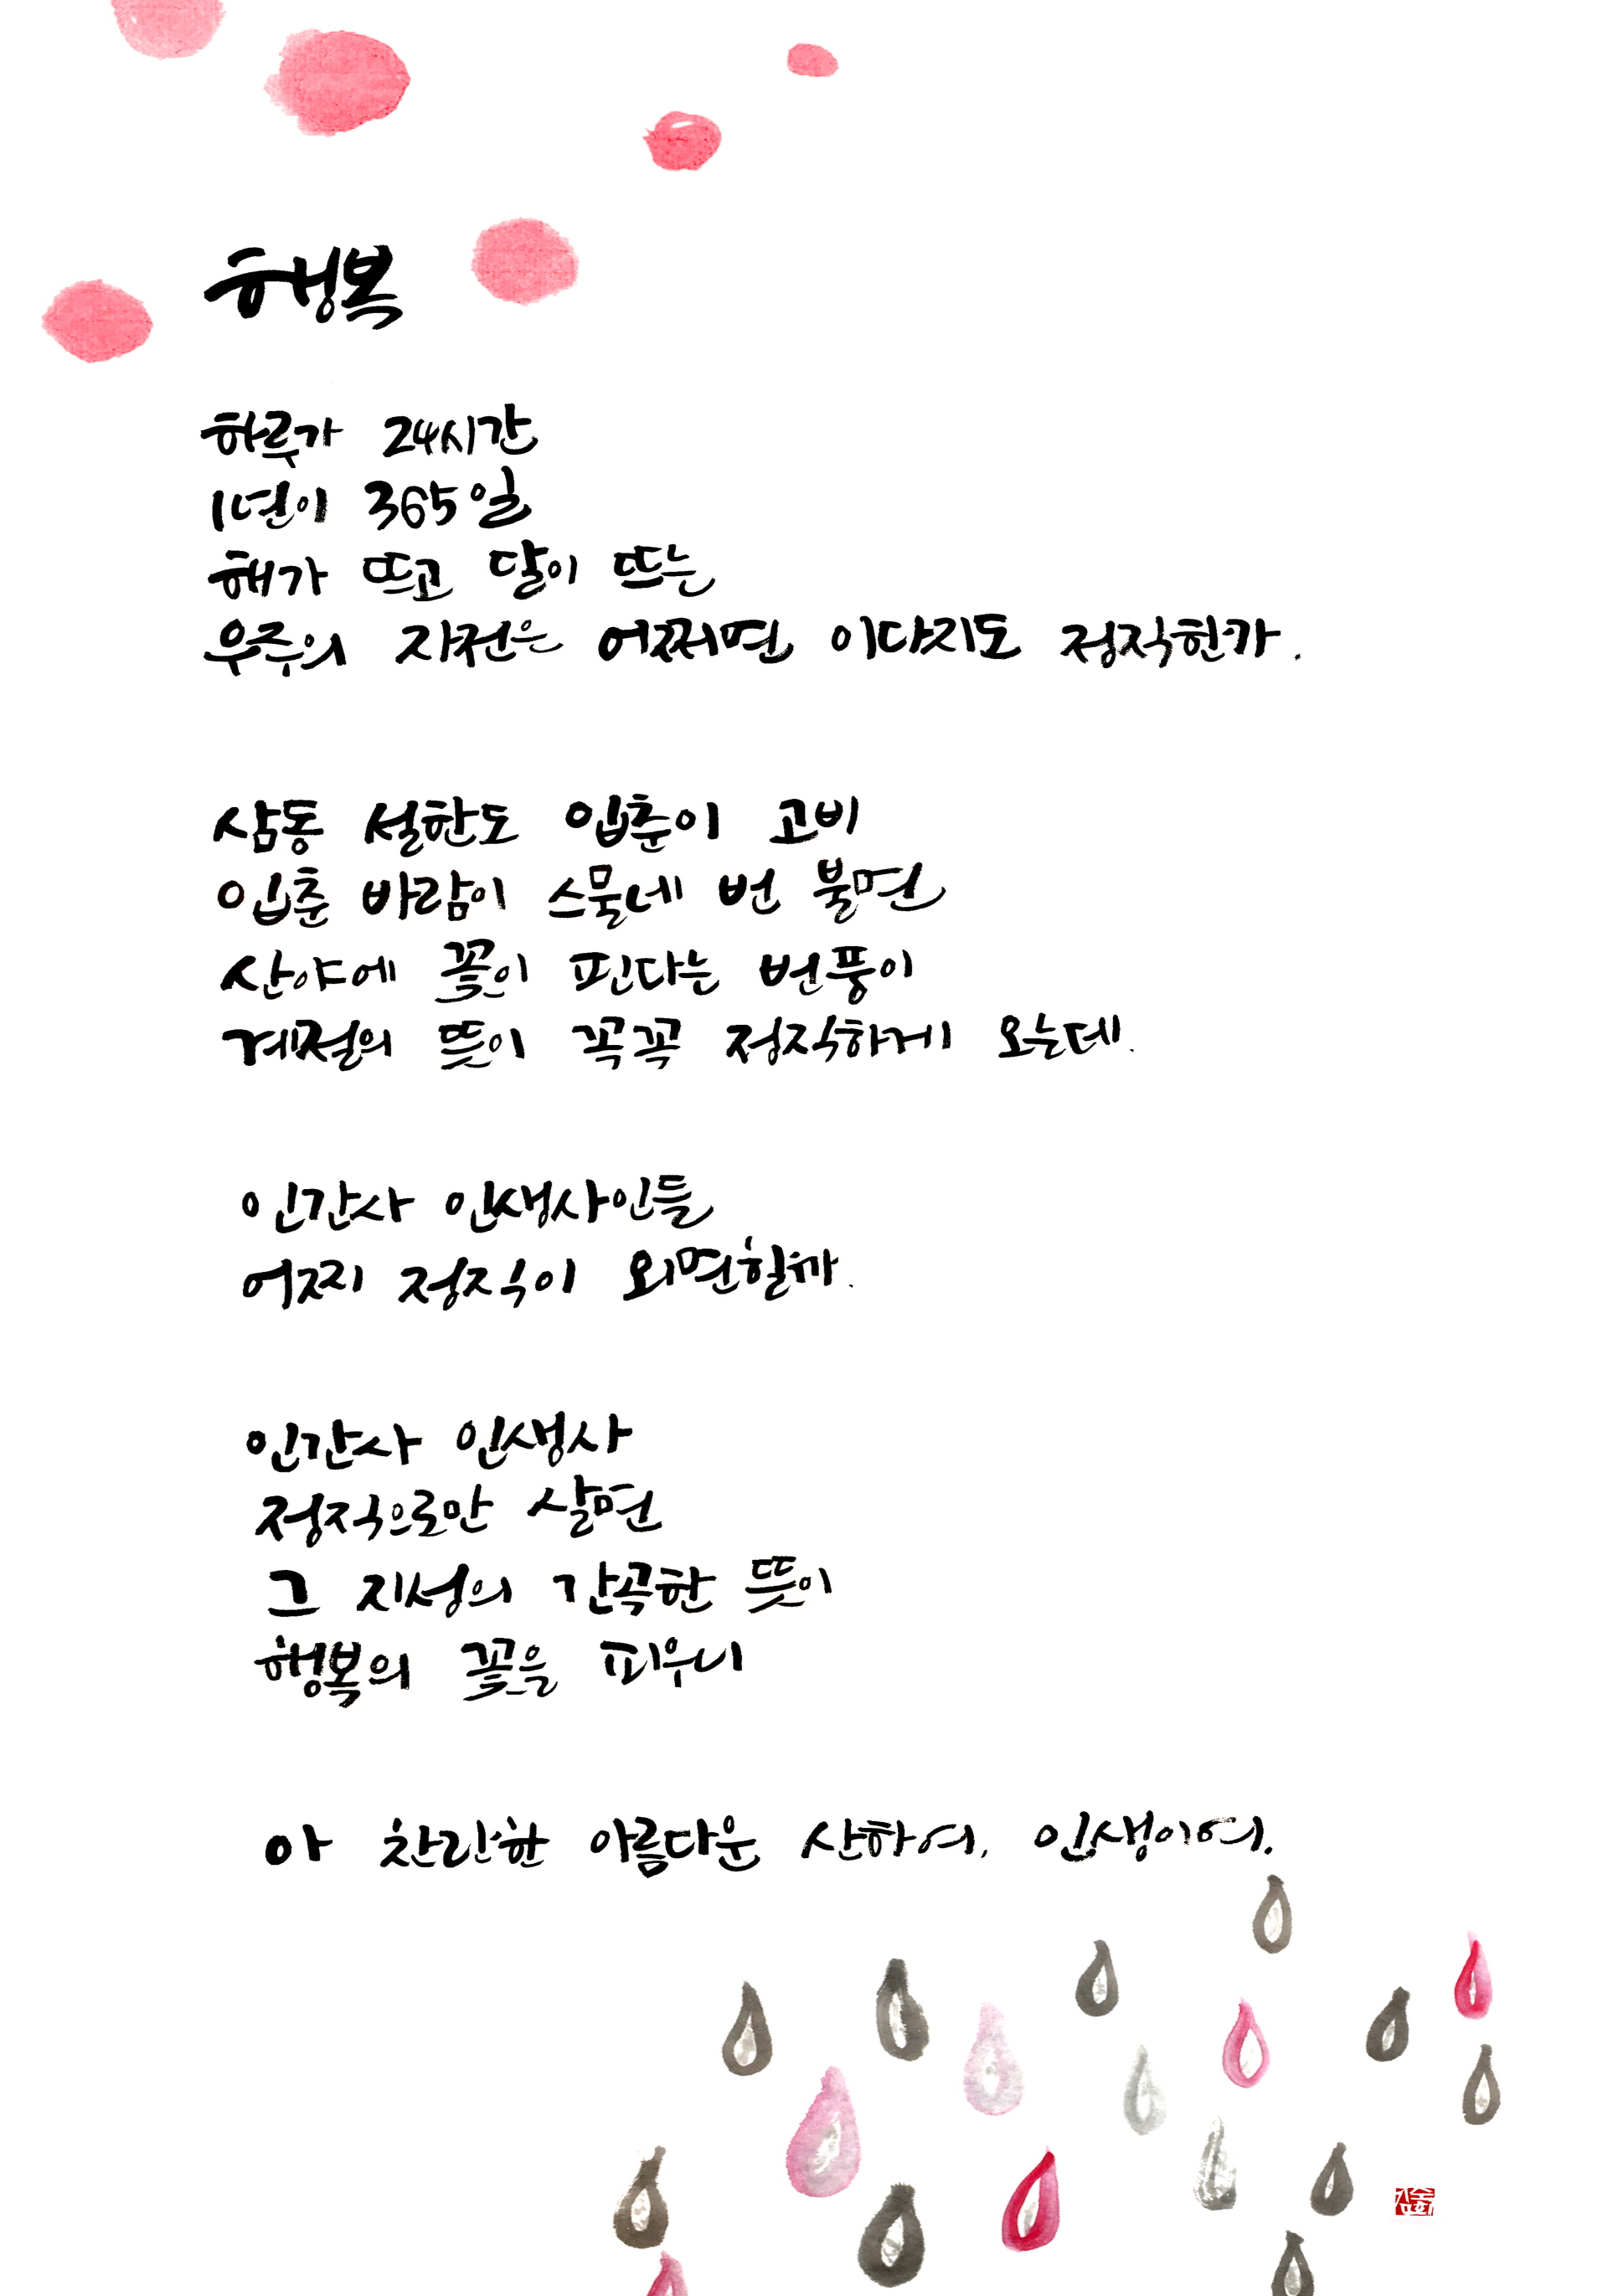 행복
하루가 24시간
1년이 365일
해가 뜨고 달이 뜨는
우주의 자전은 어쩌면 이다지도 정직한가.
삼동 설한도 입춘이 고비
입춘 바람이 스물네 번 불면
산야에 꽃이 핀다는 번풍이
계절의 뜻이 꼭꼭 정직하게 오는데.
인간사 인생사인들
어찌 정직이 외면할까.
인간사 인생사
정직으로만 살면
그 지성의 간곡한 뜻이
행복의 꽃을 피우니
아 찬란한 아름다운 산하여, 인생이여.